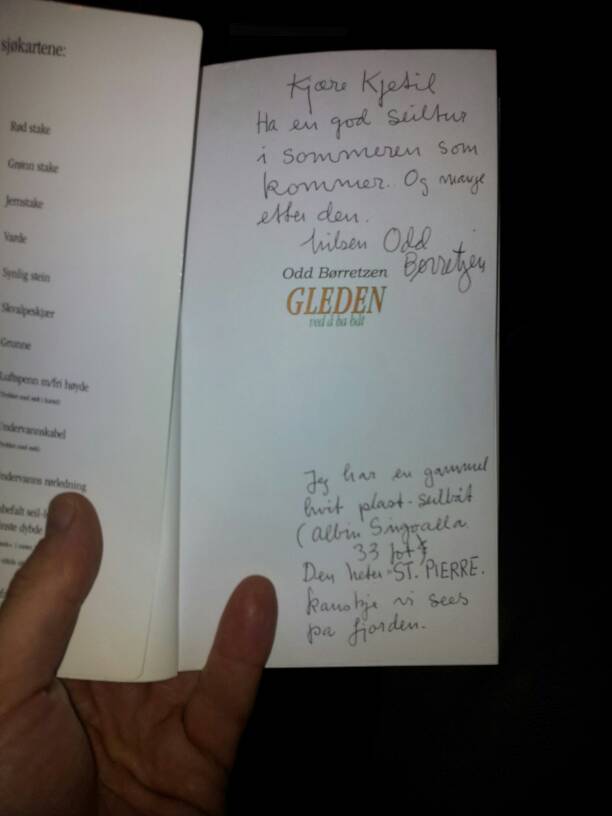 sjøkartene:
Rød stake
Grønn stake
Jernstake
Varde
Synlig stein
Skvalpeskjær
Grunne
Luftspenn m/fri høyde
Undervannskabel
ndervanns rørledning
nbefalt seil-l
inste dybde
Kjære Kjetil
Ha en god seiltur
i sommeren som
kommer. Og mange
etter den.
hilsen Odd
Børretzen
Odd Børretzen
GLEDEN
ved å ha båt
Jeg har en gammel
hvit plast-seilbåt
(Albin Singoalla
33 fot)
Den heter ST. PIERRE.
kanskje vi sees
på fjorden.